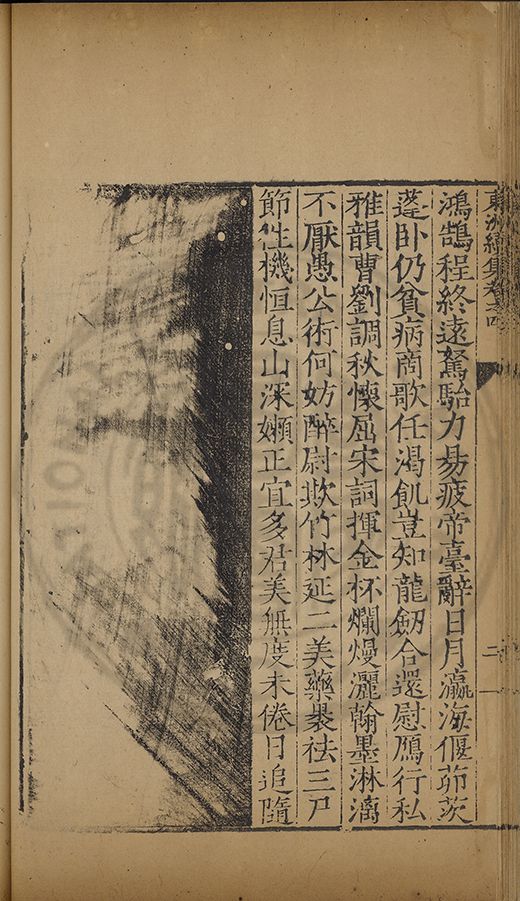 東洲續集卷之四
二
鴻鵠程終遠駑駘力易疲帝臺辭日月瀛海偃茆茨
蓬卧仍貧病商歌任渴飢豈知龍劒合還慰鴈行私
雅韻曹劉調秋懷屈宋詞揮金杯爛熳灑翰墨淋漓
不厭愚公術何妨醉尉欺竹林延二美藥裹祛三尸
節性機恒息山深嬾正宜多君美無度未倦日追隨